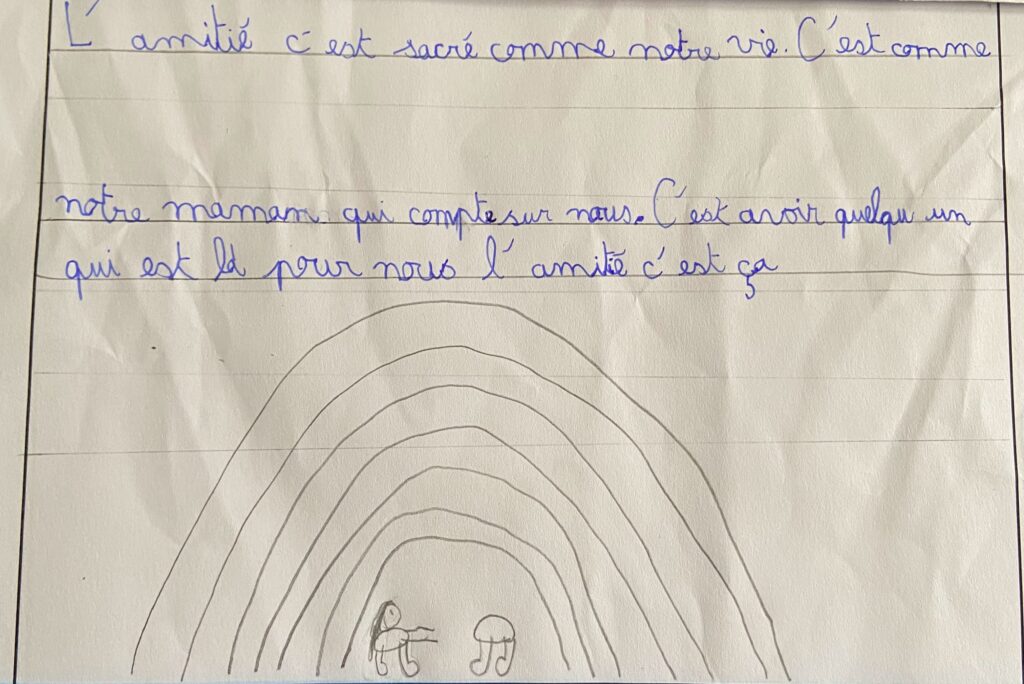 L'amitié c'est sacré comme notre vie. C'est comme
notre maman qui compte sur nous. C'est avoir quelqu'un
qui est là pour nous l'amitié c'est ça